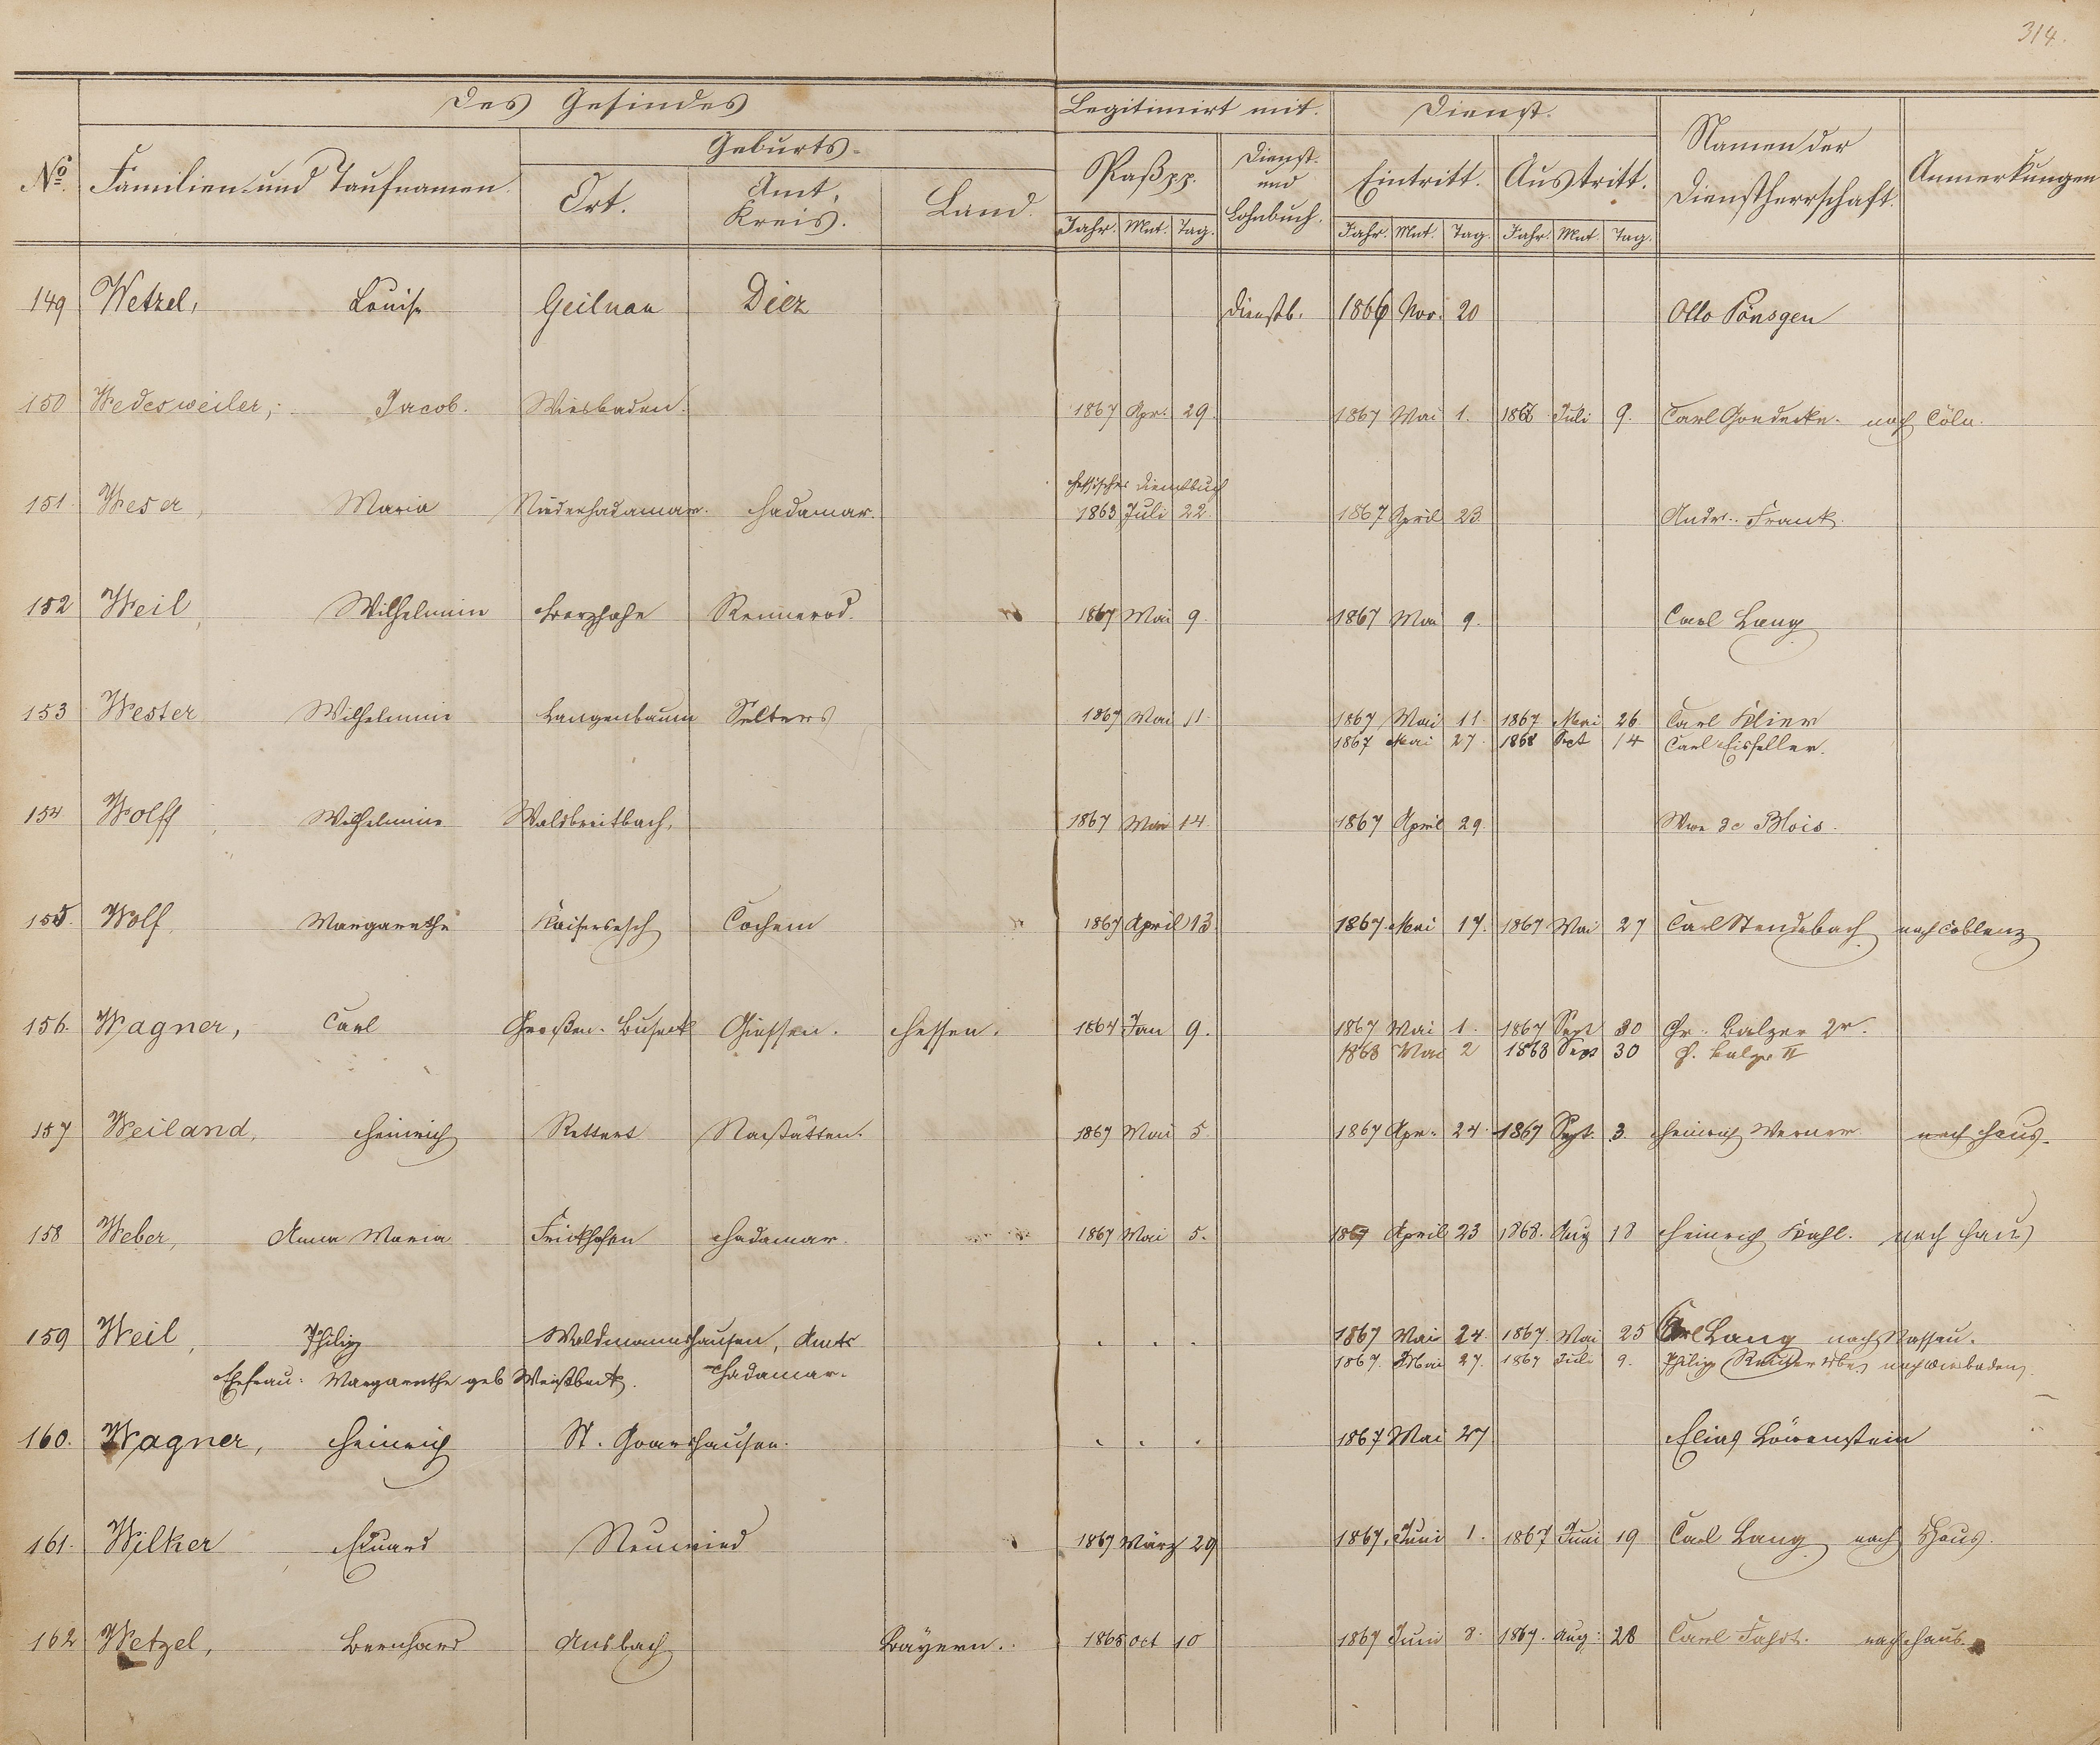 314.
Des Gesindes
Legitimirt mit.
Dienst.
No. Familien- und Taufnamen.
Geburts-
Ort. Amt, Kreis. Land.
Paß pp. Dienst- und Lohnbuch.
Eintritt. Austritt.
Namen der Dienstherrschaft.
Anmerkungen
Jahr. Mnt. Tag. Jahr. Mnt. Tag. Jahr. Mnt. Tag.
149 Wetzel, Louise Geilnau Diez Dienstb. 1866 Nov. 20 Otto Pönsgen
150 Wedesweiler, Jacob. Wiesbaden. 1867 Apr. 29. 1867 Mai 1. 1867 Juli 9. Carl Goedecke. nach Cöln.
hessisches Dienstbuch
151. Weser, Maria Niederhadamar. Hadamar. 1863 Juli 22. 1867 April 23. Andr. Frank.
152 Weil, Wilhelmine Rennerod. 1867 Mai 9. 1867 Mai 9. Carl Lang
153 Wester Wilhelmine Langenbaum Selters 1867 Mai 11. 1867 Mai 11. 1867 Mai 26. Carl Klier
1867 Mai 27. 1868 Sept 14 Carl Eisfeller.
154 Wolff, Wilhelmine Waldbreitbach, 1867 Mai 14. 1867 April 29. Wwe de Blois.
155. Wolf, Margarethe Kaisersesch Cochem 1867 April 13. 1867. Mai 17. 1867 Mai 27 Carl Stendebach nach Coblenz
156. Wagner, Carl Großen-Buseck Giessen. Hessen. 1864 Jan 9. 1867 Mai 1. 1867 Sept 30 Gr. Balzer 2r.
1868 Mai 2 1868 Sept 30 Balzer II
157 Weiland, Heinrich Rettert Nastätten. 1867 Mai 5. 1867 Apr. 24. 1867 Sept. 3. Heinrich Werner. nach Haus.
158 Weber, Anna Maria Frickhofen Hadamar. 1867 Mai 5. 1867 April 23 1868. Aug 18 Heinrich Kahl. nach Haus
159 Weil, Philipp Waldmannshausen, Amts . . . 1867 Mai 24. 1867. Mai 25 Carl Lang nach Nassau.
Ehefrau: Margarethe geb Weißbart. Hadamar. 1867. Mai 27. 1867 Juli 9. Philipp nach Wiesbaden.
160. Wagner, Heinrich St. Goarshausen. . . . 1867 Mai 27 Elias Löwenstein
161. Wilker Eduard Neuwied 1867 März 29 1867. Juni 1. 1867 Juni 19 Carl Lang nach Haus.
162 Wetzel, Bernhard Ansbach Bayern. 1865 Oct 10 1867 Juni 8. 1867. Aug. 28 Carl Fahdt. nach Haus.